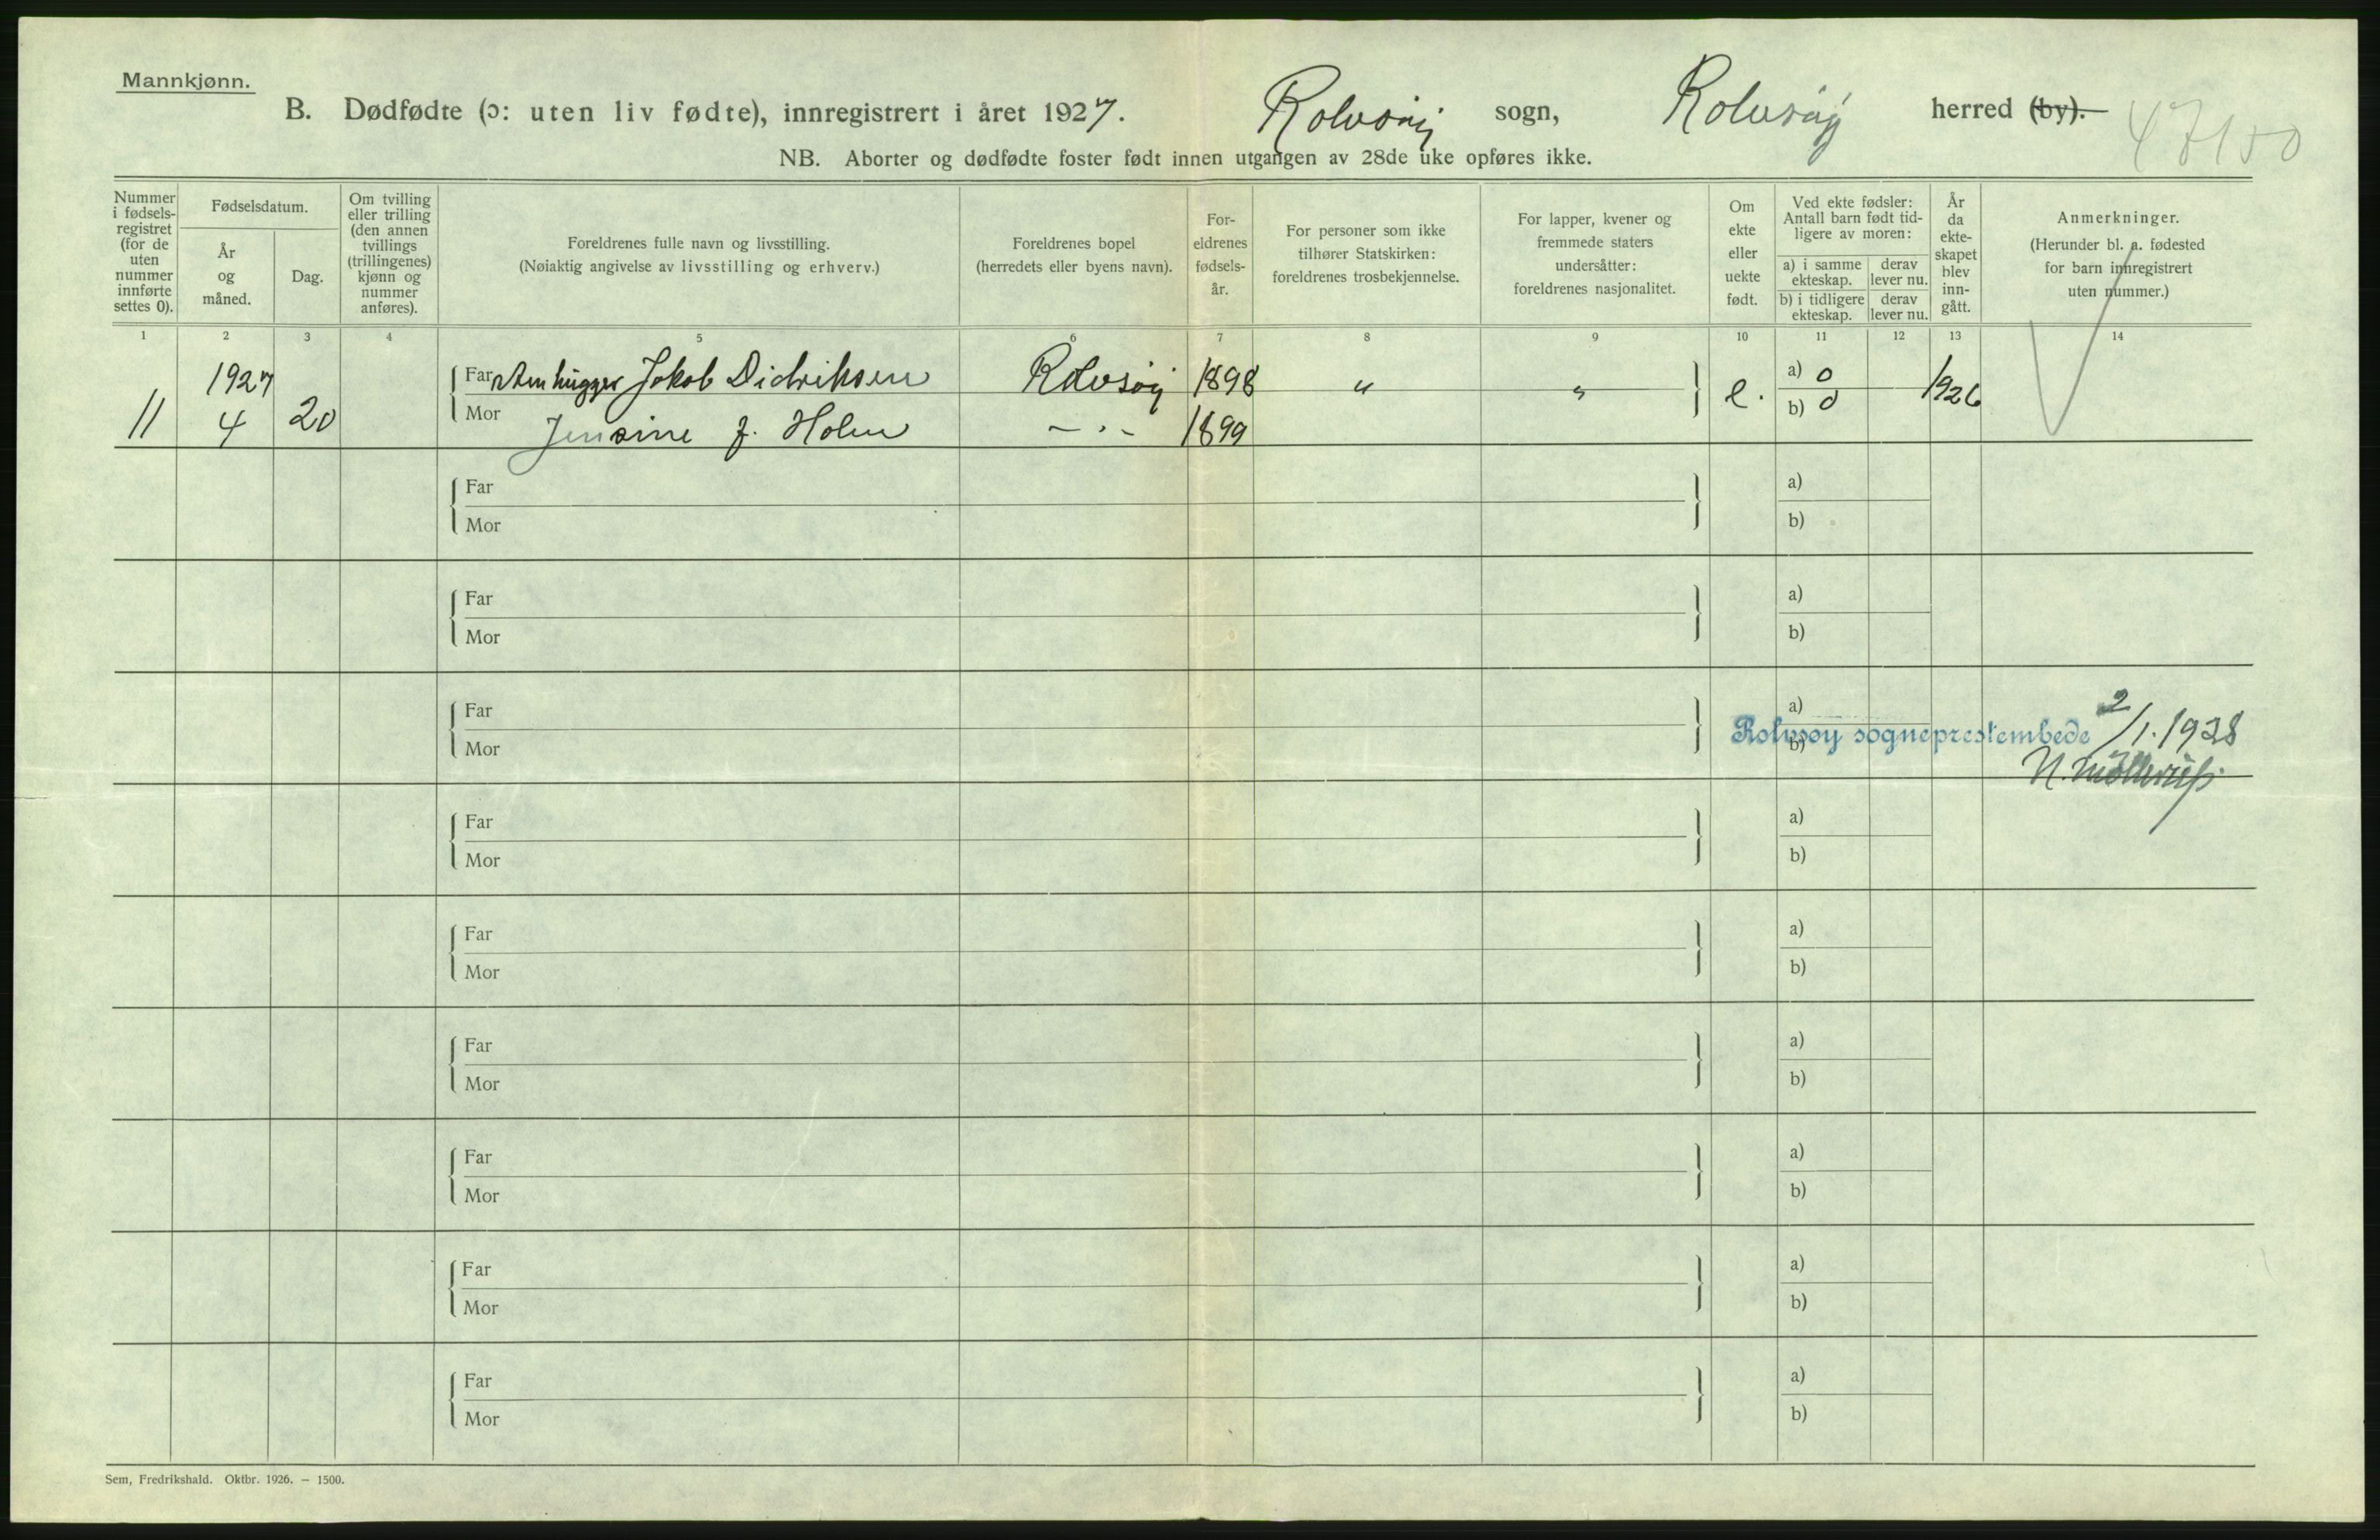 Mannkjønn.
B. Dødfødte (ɔ: uten liv fødte), innregistrert i året 1927. Rolvsøy sogn, Rolvsøy herred (by). 47150
NB. Aborter og dødfødte foster født innen utgangen av 28de uke opføres ikke.
Nummer i fødsels-registret (for de uten nummer innførte settes 0).
Fødselsdatum.
År og måned.
Dag.
Om tvilling eller trilling (den annen tvillings (trillingenes) kjønn og nummer anføres).
Foreldrenes fulle navn og livsstilling.
(Nøiaktig angivelse av livsstilling og erhverv.)
Foreldrenes bopel
(herredets eller byens navn).
For-eldrenes fødsels-år.
For personer som ikke tilhører Statskirken: foreldrenes trosbekjennelse.
For lapper, kvener og fremmede staters undersåtter: foreldrenes nasjonalitet.
Om ekte eller uekte født.
Ved ekte fødsler: Antall barn født tid-ligere av moren:
a) i samme ekteskap.
derav lever nu.
b) i tidligere ekteskap.
derav lever nu.
År da ekte-skapet blev inn-gått.
Anmerkninger.
(Herunder bl. a. fødested for barn innregistrert uten nummer.)
1 2 3 4 5 6 7 8 9 10 11 12 13 14
1927 Far Stenhugger Jakob Didriksen Rolvsøy 1898 " " e. a) 0 1926
11 4 20 Mor Jensine f. Holm – · – 1899 b) 0
Far a)
Mor b)
Far a)
Mor b)
Far a)
Mor b)
Rolvsøy sogneprestembede 2/1. 1928
N. Møllerup.
Far a)
Mor b)
Far a)
Mor b)
Far a)
Mor b)
Far a)
Mor b)
Far a)
Mor b)
Far a)
Mor b)
Sem, Fredrikshald. Oktbr. 1926. — 1500.